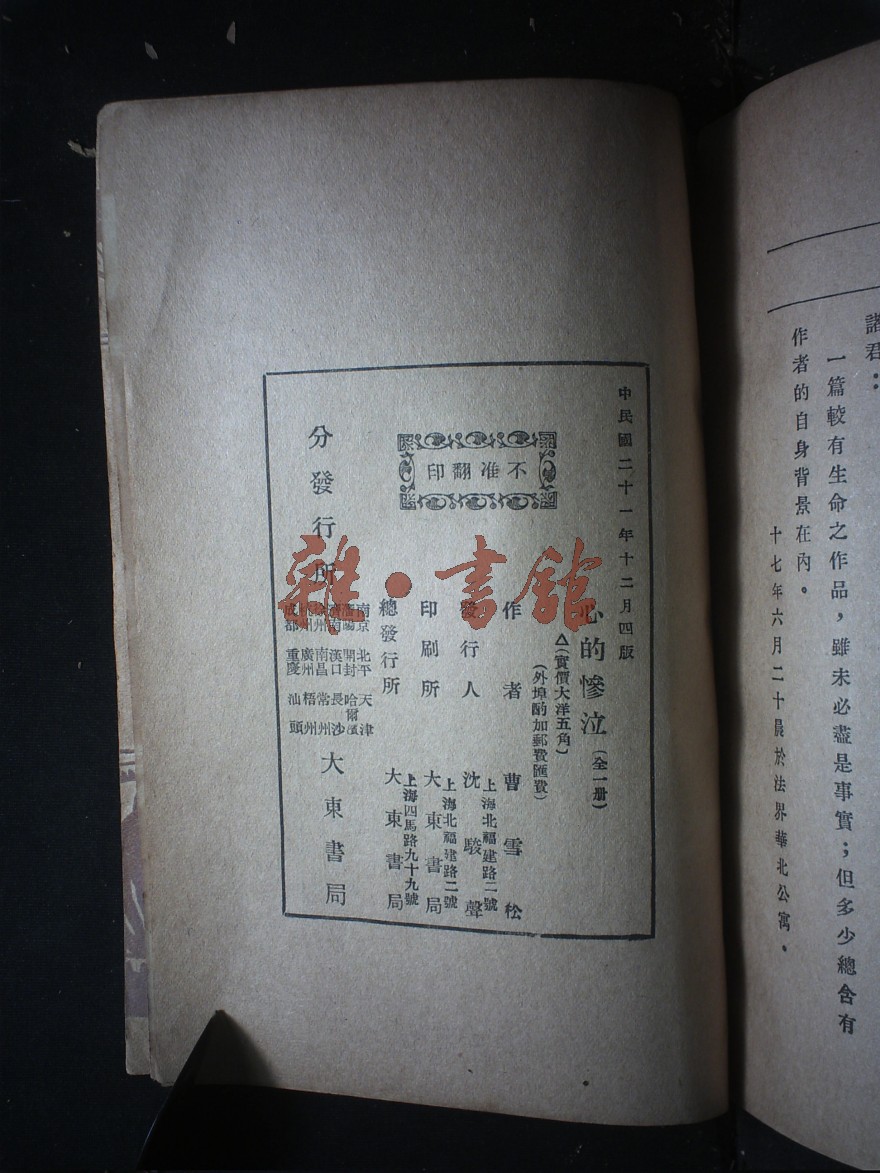 諸君：
一篇較有生命之作品，雖未必盡是事實；但多少總含有
作者的自身背景在內。
十七年六月二十晨於法界華北公寓。
中民國二十一年十二月四版
心的慘泣（全一册）
△（實價大洋五角）
（外埠酌加郵費匯費）
作者 曹雪松
上海北福建路二號
發行人 沈駿聲
上海北福建路二號
印刷所 大東書局
上海四馬路九十九號
總發行所 大東書局
不准翻印
南京 北平 天津
瀋陽 開封 哈爾濱
濟南 漢口 長沙
徐州 南昌 常州
杭州 廣州 梧州
成都 重慶 汕頭
分發行所 大東書局
雜·書館